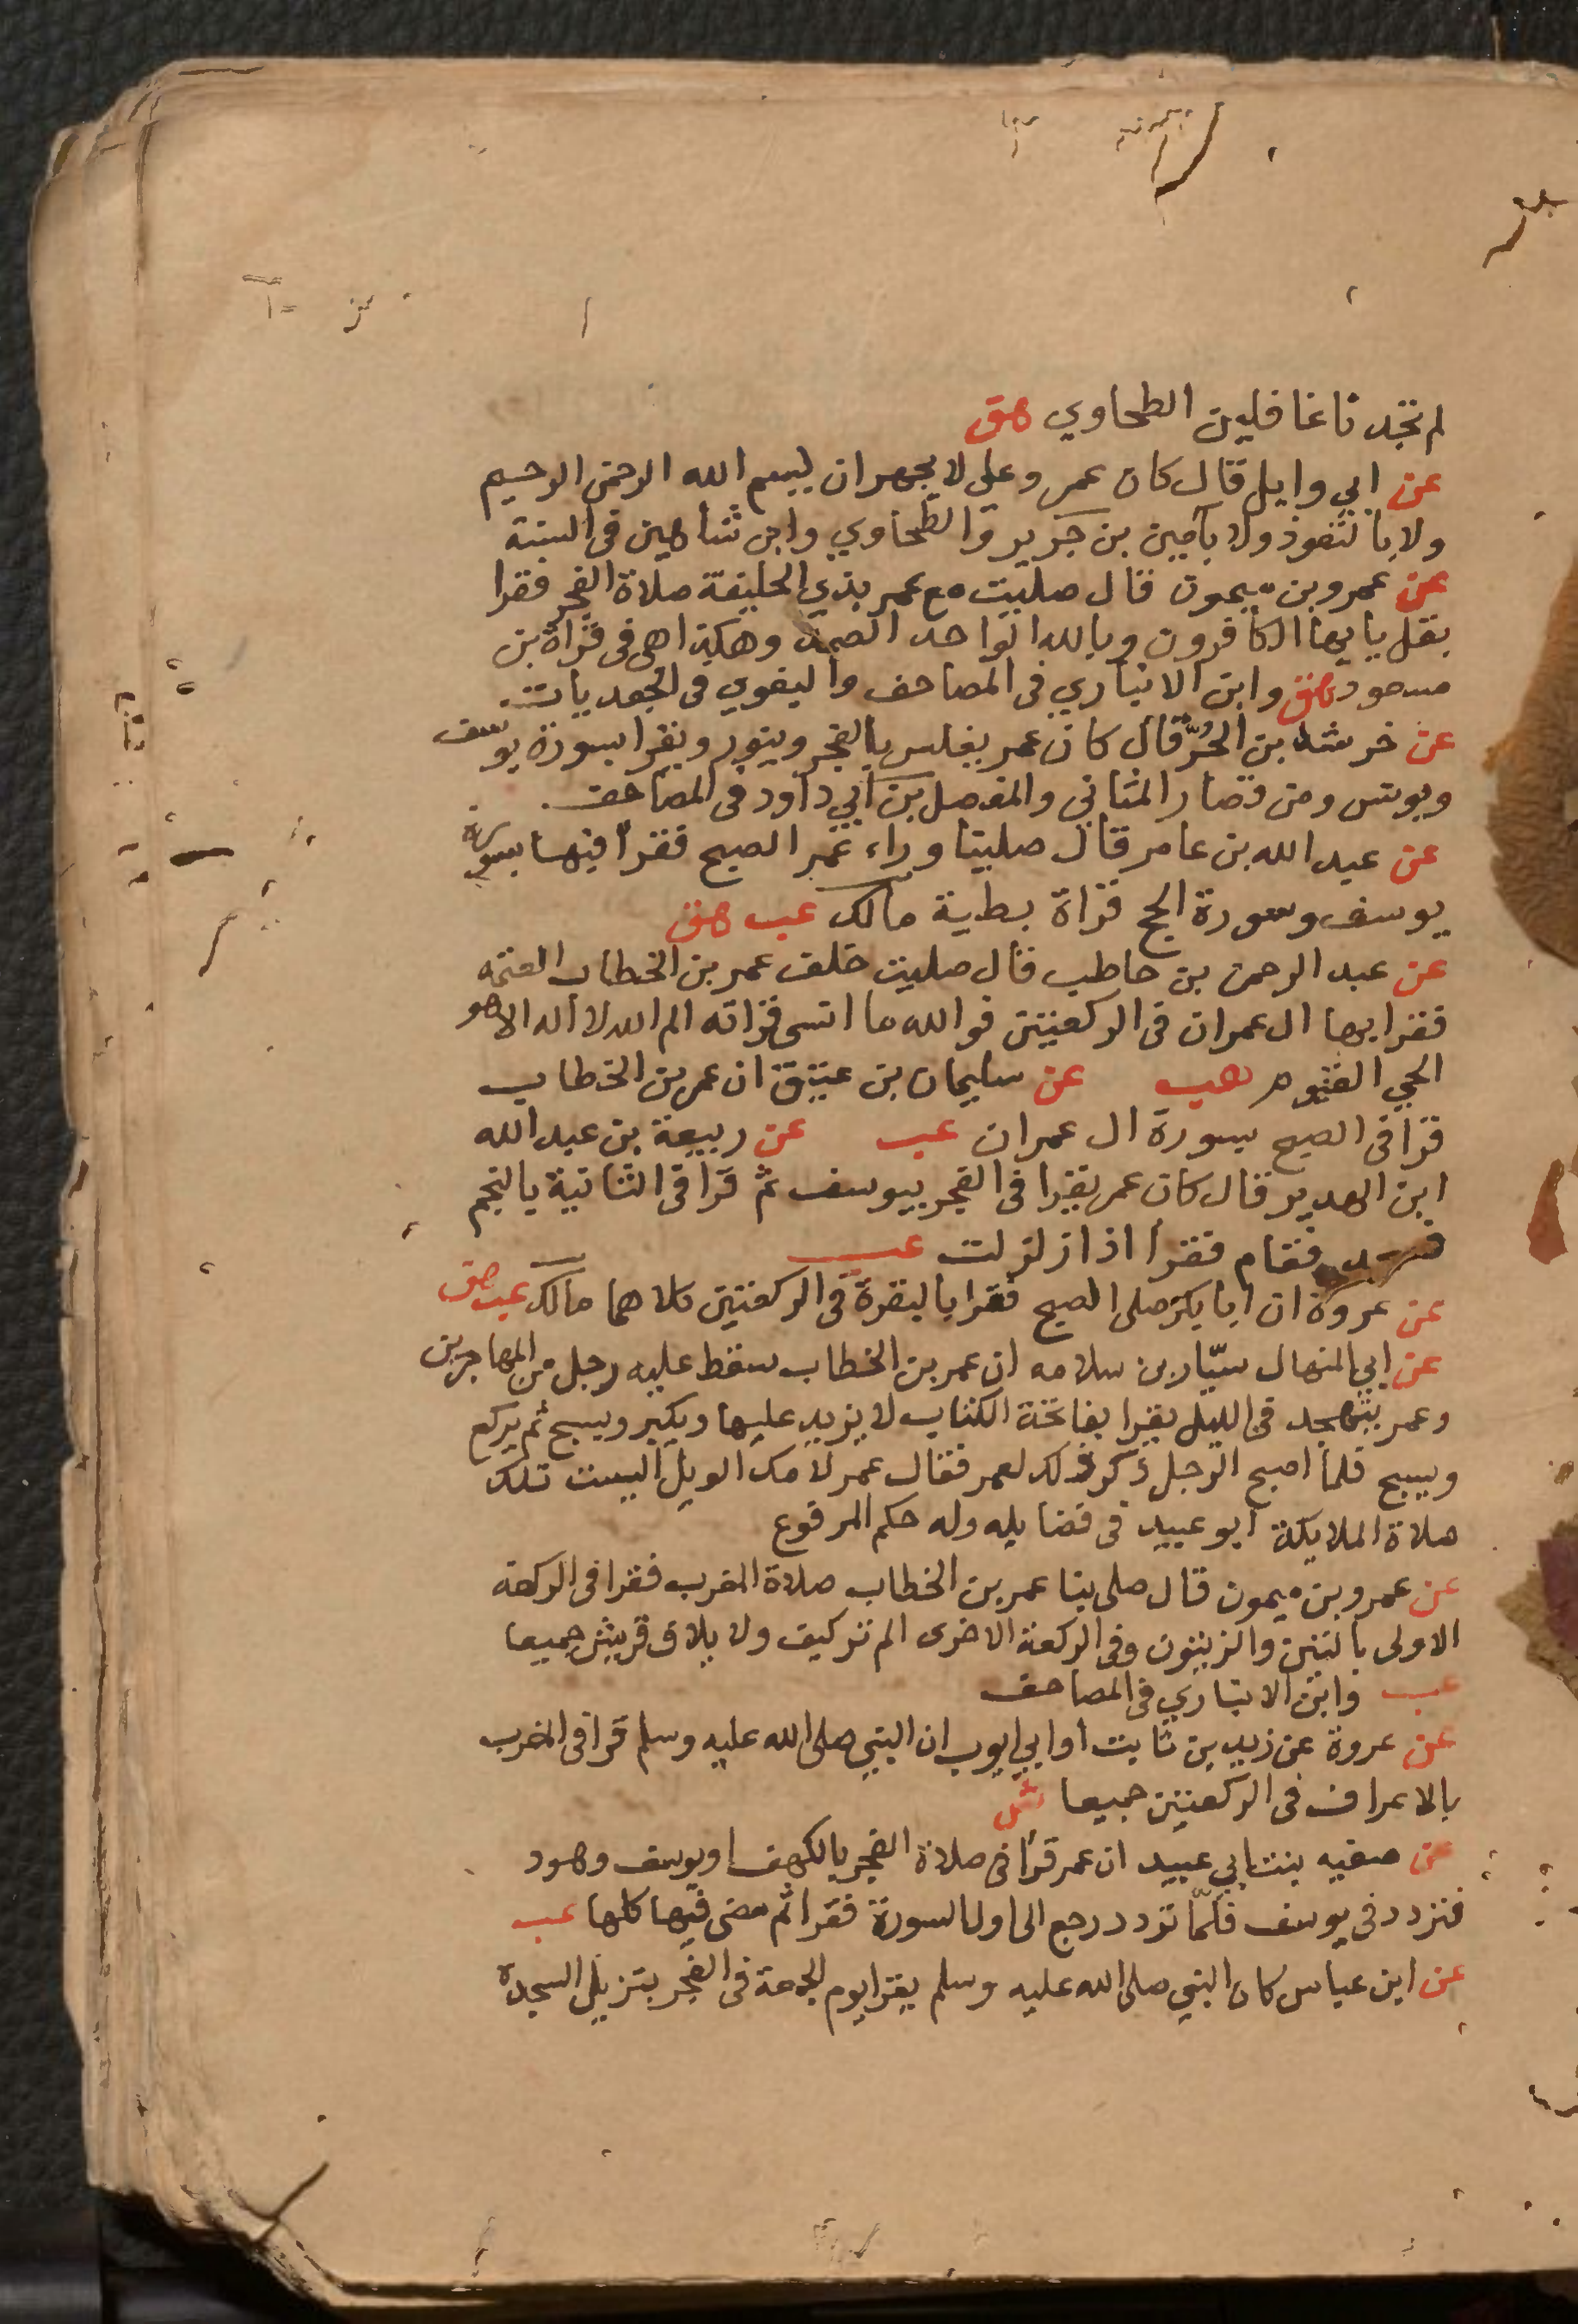 لم تجدنا غافلين الطحاوي هق
عن ابي وايل قال كان عمر وعلي لا يجهران ببسم الله الرحمن الرحيم
ولا بالتعوذ ولا بآمين بن جرير والطحاوي وابن شاهين في السنة
عن عمرو بن ميمون قال صليت مع عمر بذي الحليفة صلاة الفجر فقرا
بقل يا يها الكافرون وبالله الواحد الصمد وهكذا هي في قراة بن
مسعود هق وابن الانباري في المصاحف والبغوي في الجعديات
عن خرشة بن الحُرّ قال كان عمر يغلس بالفجر وينور ويقرا بسورة يوسف
ويونس ومن قصار المثاني والمفصل بن ابي داود في المصاحف
عن عبد الله بن عامر قال صلينا وراء عمر الصبح فقرأ فيها بسورة
يوسف وسورة الحج قراة بطية مالك عب هق
عن عبد الرحمن بن حاطب قال صليت خلف عمر بن الخطاب العتمه
فقرا بها ال عمران في الركعتين فوالله ما انسى قراته الم الله لا اله الا هو
الحي القيوم هب عن سليمان بن عتيق ان عمر بن الخطاب
قرا في الصبح بسورة ال عمران عب عن ربيعة بن عبد الله
ابن الهدير قال كان عمر يقرا في الفجر بيوسف ثم قرا في الثانية بالنجم
فسجد فقام فقرا اذا زلزلت عب
عن عروة ان ابا بكر صلى الصبح فقرا بالبقرة في الركعتين كلاهما مالك عب هق
عن ابي المنهال سيّار بن سلامه ان عمر بن الخطاب سقط عليه رجل من المهاجرين
وعمر يتهجد في الليل يقرا بفاتحة الكتاب لا يزيد عليها ويكبر ويسبح ثم يركع
ويسبح فلما اصبح الرجل ذكر ذلك لعمر فقال عمر لامك الويل اليست تلك
صلاة الملايكة ابو عبيد في فضايله وله حكم المرفوع
عن عمرو بن ميمون قال صلى بنا عمر بن الخطاب صلاة المغرب فقرا في الركعة
الاولى بالتين والزيتون وفي الركعة الاخرى الم تر كيف ولا يلاف قريش جميعا
عب وابن الانباري في المصاحف
عن عروة عن زيد بن ثابت او ابي ايوب ان النبي صلى الله عليه وسلم قرا في المغرب
بالاعراف في الركعتين جميعا ش
عن صفيه بنت ابي عبيد ان عمر قرأ في صلاة الفجر بالكهف او يوسف وهود
فتردد في يوسف فلمّا تردد رجع الى اول السورة فقرا ثم مضى فيها كلها عب
عن ابن عباس كان النبي صلى الله عليه وسلم يقرا يوم الجمعة في الفجر بتنزيل السجدة